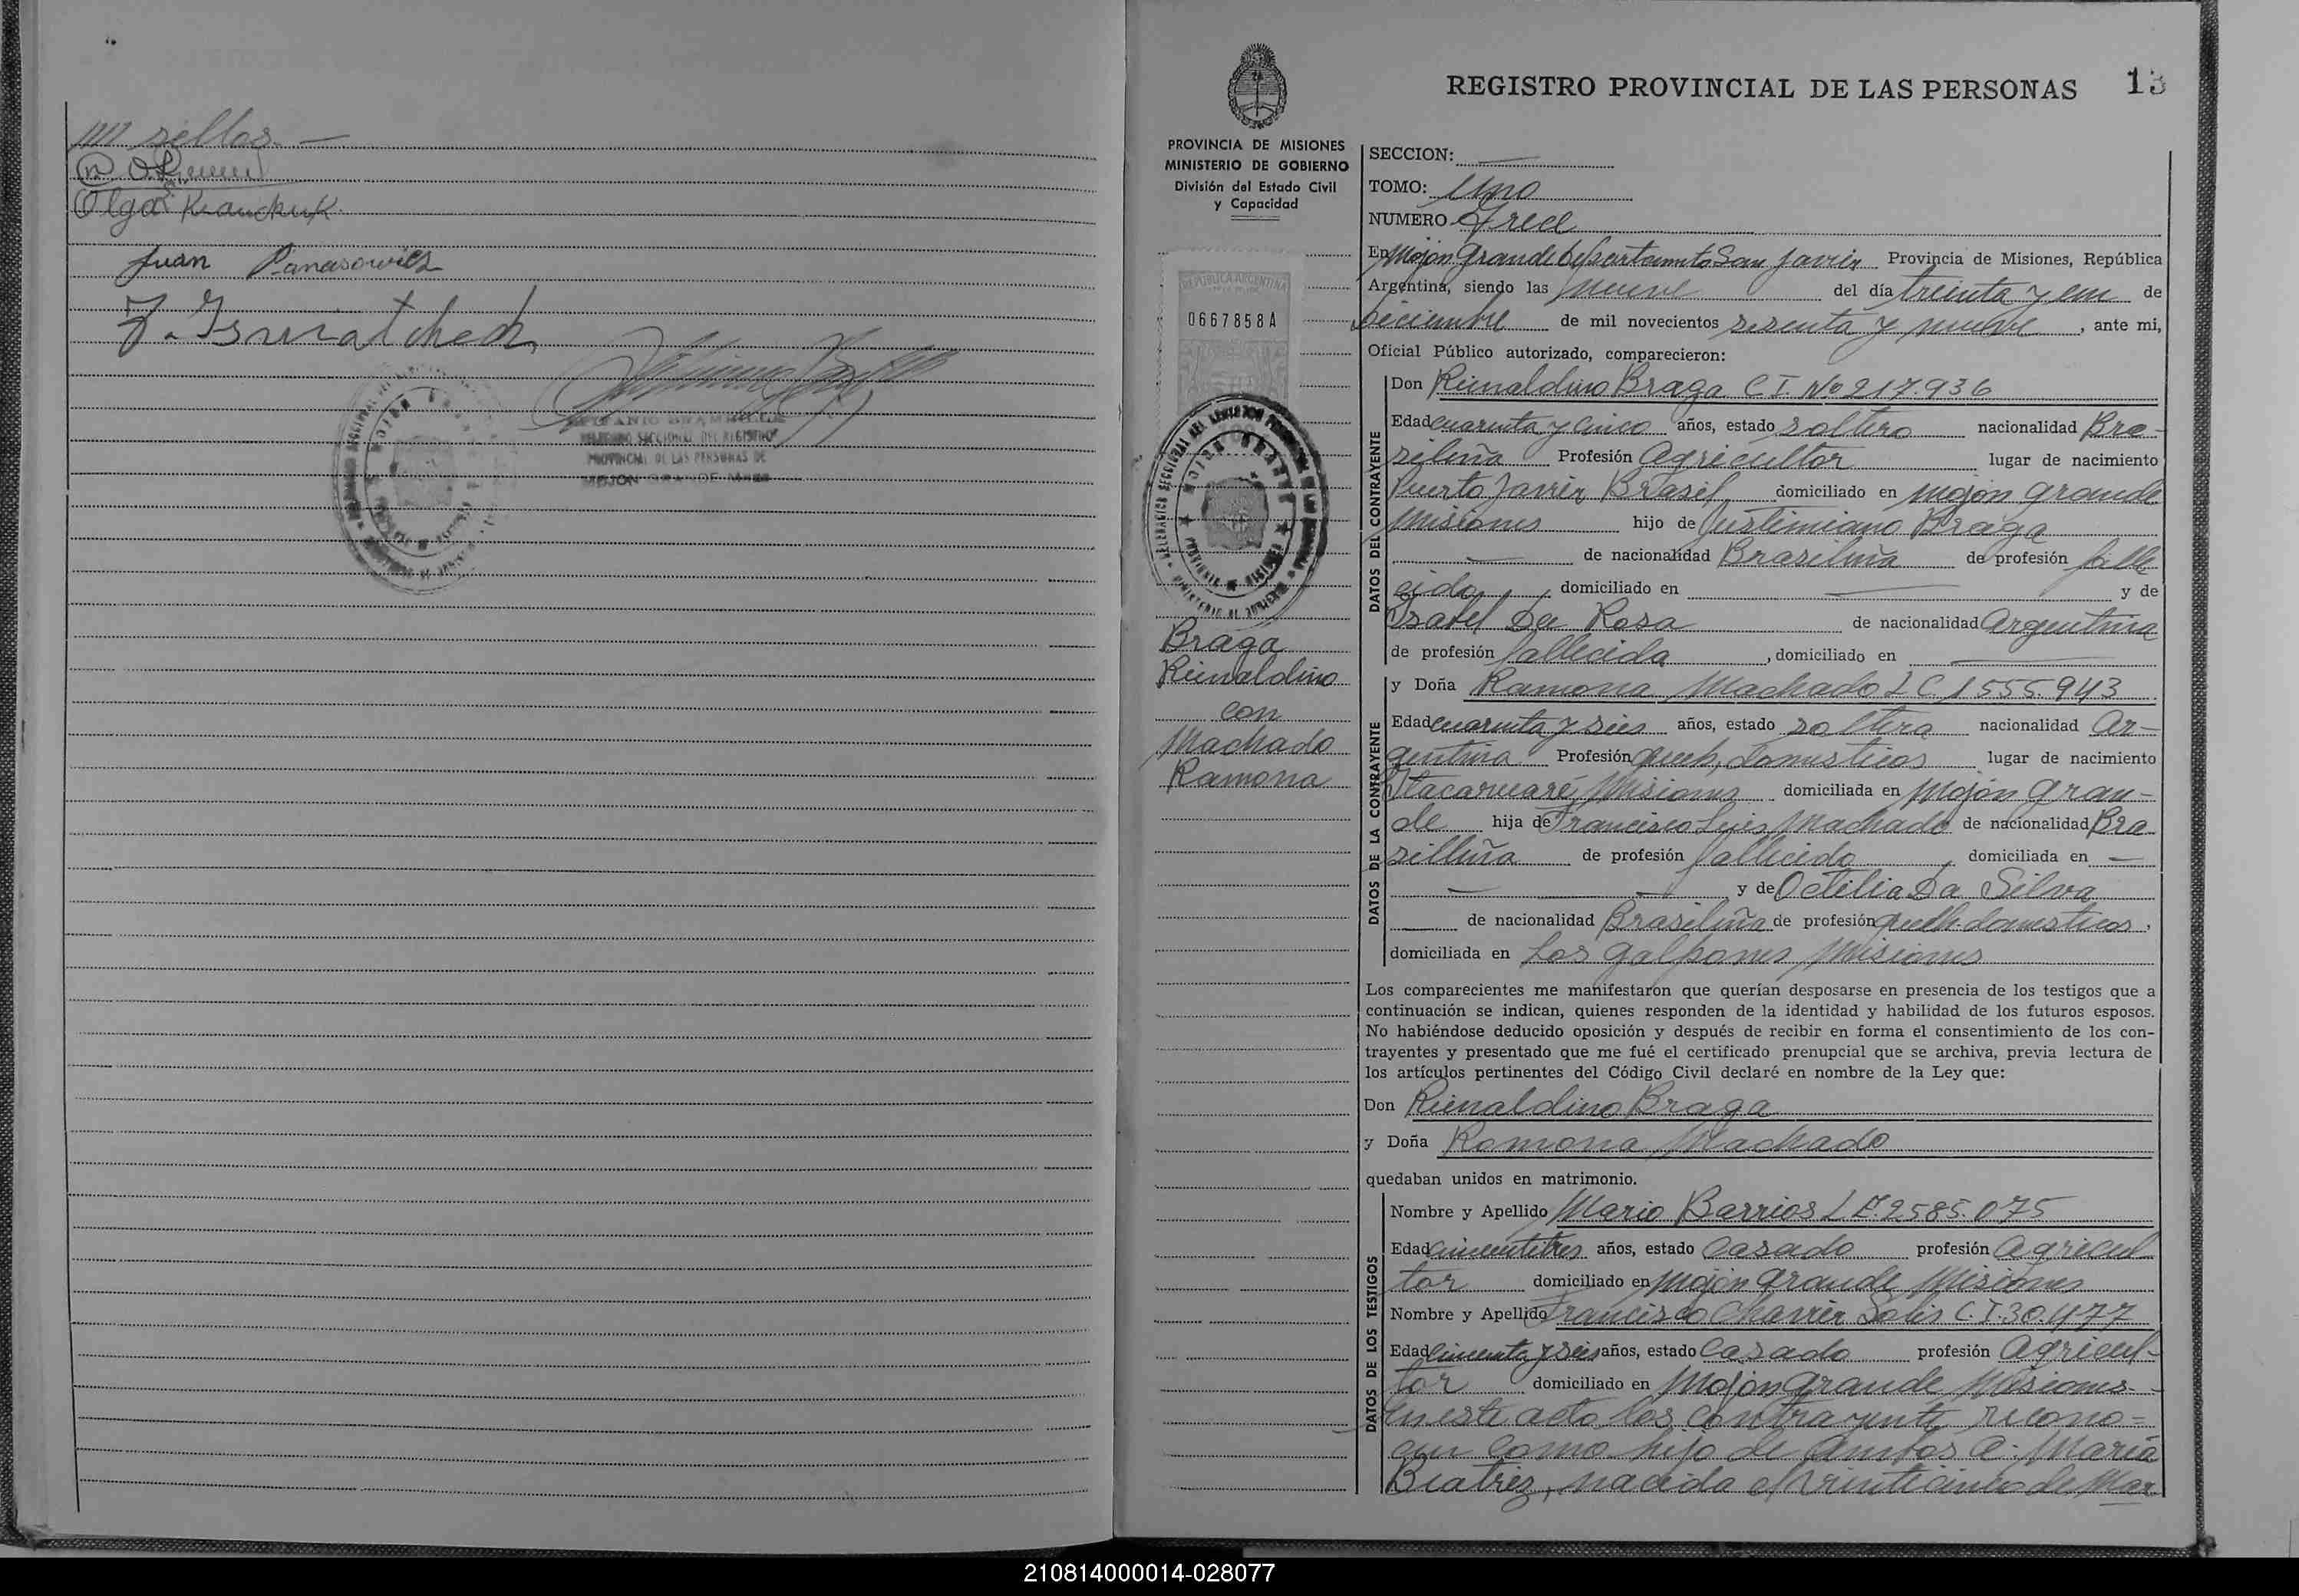 sellos.—
Olga Krauchuk
Juan Panasowicz
MOJON GRANDE
DELEGADO SECCIONAL DEL REGISTRO
PROVINCIAL DE LAS PERSONAS DE
MOJON GRANDE
REGISTRO PROVINCIAL DE LAS PERSONAS 13
PROVINCIA DE MISIONES
MINISTERIO DE GOBIERNO
División del Estado Civil
y Capacidad
REPUBLICA ARGENTINA
0667858A
MOJON GRANDE
Braga
Rienaldino
con
Machado
Ramona
SECCION: —
TOMO: Uno
NUMERO Trece
En Mojon Grande Departamento San Javier Provincia de Misiones, República
Argentina, siendo las nueve del día treinta y un de
Diciembre de mil novecientos sesenta y nueve, ante mi,
Oficial Público autorizado, comparecieron:
DATOS DEL CONTRAYENTE
Don Rienaldino Braga C.I. No 217.936
Edad cuarenta y cinco años, estado soltero nacionalidad Bra-
sileña Profesión Agricultor lugar de nacimiento
Puerto Javier Brasil, domiciliado en Mojon Grande
Misiones hijo de Justiniano Braga
— de nacionalidad Brasileña de profesión falle
cido, domiciliado en — y de
Isabel Da Rosa de nacionalidad Argentina
de profesión fallecida, domiciliado en —
DATOS DE LA CONTRAYENTE
y Doña Ramona Machado L C. 1555.943
Edad cuarenta y seis años, estado soltera nacionalidad Ar-
gentina Profesión queh, domesticos lugar de nacimiento
Itacaruaré, Misiones domiciliada en Mojón Gran-
de hija de Francisco Luis Machado de nacionalidad Bra
silleña de profesión fallecido, domiciliada en —
— — y de Octilia Da Silva
— de nacionalidad Brasileña de profesión queh. domesticos,
domiciliada en Los Galpones Misiones
Los comparecientes me manifestaron que querían desposarse en presencia de los testigos que a
continuación se indican, quienes responden de la identidad y habilidad de los futuros esposos.
No habiéndose deducido oposición y después de recibir en forma el consentimiento de los con-
trayentes y presentado que me fué el certificado prenupcial que se archiva, previa lectura de
los artículos pertinentes del Código Civil declaré en nombre de la Ley que:
Don Rienaldino Braga
y Doña Ramona Machado
quedaban unidos en matrimonio.
DATOS DE LOS TESTIGOS
Nombre y Apellido Mario Barrios L.E. 2585.075
Edad cincuentitres años, estado Casado profesión Agricul
tor domiciliado en Mojón Grande Misiones
Nombre y Apellido Francisco Solis C.I. 30.477
Edad cincuenta y seis años, estado Casado profesión Agricul-
tor domiciliado en Mojon Grande Misiones.-
En este acto los contrayente recono=
cen como hijo de ambos a: María
Beatriz, nacida el veinticinco de Mar
210814000014-028077